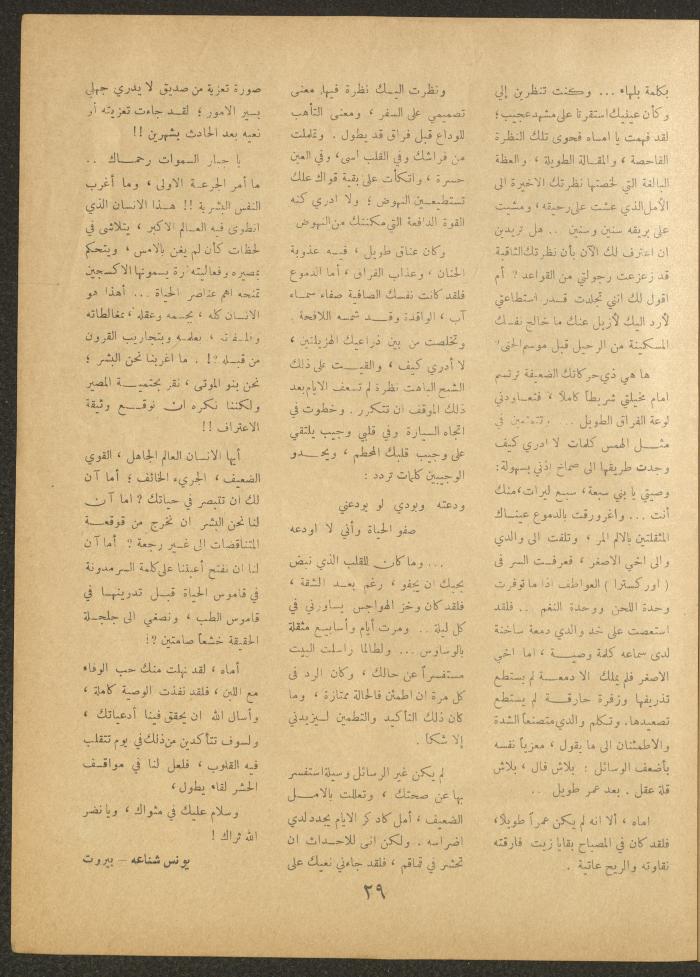 بكلمة بلهاء ... وكنت تنظرين إلي
وكأن عينيك استقرتا على مشهد عجيب ؛
لقد فهمت يا اماه فحوى تلك النظرة
الفاحصة ، والمقالة الطويلة ، والعظة
البالغة التي لخصتها نظرتك الاخيرة الى
الأمل الذي عشت على رحيقه ، ومشيت
على بريقه سنين وسنين .. هل تريدين
ان اعترف لك الآن بأن نظرتك الثاقبة
قد زعزعت رجولتي من القواعد ? أم
اقول لك انني تجلدت قدر استطاعتي
لأرد اليك لأزيل عنك ما خالج نفسك
المسكينة من الرحيل قبل موسم الجنى ?
ها هي ذي حركاتك الضعيفة ترتسم
امام مخيلتي شريطاً كاملا ، فتعاودني
لوعة الفراق الطويل .. وتتمتمين في
مثل الهمس كلمات لا ادري كيف
وجدت طريقها الى صماخ اذني بسهولة :
وصيتي يا بني سبعة ، سبع ليرات ، منك
أنت ... واغرورقت بالدموع عيناك
المثقلتين بالالم المر ، وتلفت الى والدي
والى اخي الاصغر ، فعرفت السر في
( اوركسترا ) العواطف اذا ما توفرت
وحدة اللحن ووحدة النغم .. فلقد
استعصت على خد والدي دمعة ساخنة
لدى سماعه كلمة وصية ، اما اخي
الاصغر فلم يملك الا دمعة لم يستطع
تذريفها وزفرة حارقة لم يستطع
تصعيدها . وتكلم والدي متصنعاً الشدة
والاطمئنان الى ما يقول ، معزياً نفسه
بأضعف الوسائل : بلاش فال ، بلاش
قلة عقل . بعد عمر طويل ..
اماه ، ألا انه لم يكن عمراً طويلا ،
فلقد كان في المصباح بقايا زيت فارقته
نقاوته والريح عاتية .
ونظرت اليك نظرة فيها معنى
تصميمي على السفر ، ومعنى التأهب
للوداع قبل فراق قد يطول . وتململت
من فراشك وفي القلب اسى ، وفي العين
حسرة ، واتكأت على بقية قواك علك
تستطيعين النهوض ؛ ولا ادري كنه
القوة الدافعة التي مكنتك من النهوض
وكان عناق طويل ، فيه عذوبة
الحنان ، وعذاب الفراق ، أما الدموع
فلقد كانت نفسك الصافية صفاء سماء
آب ، الواقدة وقد شمسه اللافحة .
وتخلصت من بين ذراعيك الهزيلتين ،
لا أدري كيف ، والقيت على ذلك
الشبح الباهت نظرة لم تسعف الايام بعد
ذلك الموقف ان تتكرر . وخطوت في
اتجاه السيارة وفي قلبي وجيب يلتقي
على وجيب قلبك المحطم ، ويحدو
الوجيبين كلمات تردد :
ودعته وبودي لو يودعني
صفو الحياة وأني لا اودعه
... وما كان للقلب الذي نبض
بحبك ان يجفو ، رغم بعد الشقة ،
فلقد كان وخز الهواجس يساورني في
كل ليلة .. ومرت أيام وأسابيع مثقلة
بالوساوس ... ولطالما راسلت البيت
مستفسراً عن حالك ، وكان الرد في
كل مرة ان اطمئن فالحالة ممتازة ، وما
كان ذلك التأكيد والتطمين ليزيدني
إلا شكاً .
لم يكن غير الرسائل وسيلة استفسر
بها عن صحتك ، وتعللت بالامل
الضعيف ، أمل كاد كر الايام يجدد لدي
اضراسه . ولكن انى للاحداث ان
تحشر في قماقم ، فلقد جاءني نعيك على
صورة تعزية من صديق لا يدري جهلي
بسير الامور ؛ لقد جاءت تعزيته أو
نعيه بعد الحادث بشهرين !!
يا جبار السموات رحماك ..
ما أمر الجرعة الاولى ، وما أغرب
النفس البشرية !! هذا الانسان الذي
انطوى فيه العالم الاكبر ، يتلاشى في
لحظات كأن لم يغن بالامس ، ويتحكم
بمصيره وفعاليته ذرة يسمونها الاكسجين
تمنحه اهم عناصر الحياة ... أهذا هو
الانسان كله ، بجسمه وعقله ، بمغالطاته
وفلسفاته ، بعلمه وبتجاريب القرون
من قبله ?! . ما اغربنا نحن البشر ؛
نحن بنو الموتى ، نقر بحتمية المصير
ولكننا نكره ان نوقع وثيقة
الاعتراف !!
أيها الانسان العالم الجاهل ، القوي
الضعيف ، الجريء الخائف ؛ أما آن
لك ان تتبصر في حياتك ? اما آن
لنا نحن البشر ان نخرج من قوقعة
المتناقضات الى غير رجعة ? أما آن
لنا ان نفتح أعيننا على كلمة السر مدونة
في قاموس الحياة قبل تدوينها في
قاموس الطب ، ونصغي الى جلجلة
الحقيقة خشعاً صامتين ?!
أماه ، لقد نهلت منك حب الوفاء
مع اللبن ، فلقد نفذت الوصية كاملة ،
وأسأل الله ان يحقق فينا أدعياتك ،
ولسوف تتأكدين من ذلك في يوم تتقلب
فيه القلوب ، فلعل لنا في مواقف
الحشر لقاء يطول ،
وسلام عليك في مثواك ، ويا نضر
الله ثراك !
يونس شناعه – بيروت
٢٩